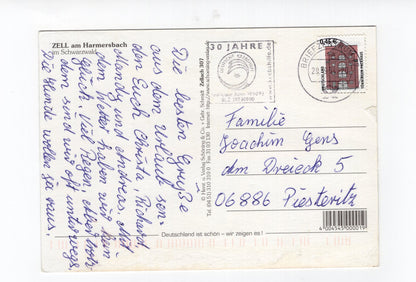 ZELL am Harmersbach
im Schwarzwald
Die besten Grüße
aus dem Urlaub sen-
den Euch Christa, Richard
Mandy und Andreas. Mit
dem Wetter haben wir kein
Glück. Viel Regen, aber trotz-
dem sind wir oft unterwegs.
Die Hunde wollen ja raus.
30 JAHRE
Familie
Joachim Gens
dem Dreieck 5
06886 Piesteritz
Deutschland ist schön – wir zeigen es!
4 004545 000019